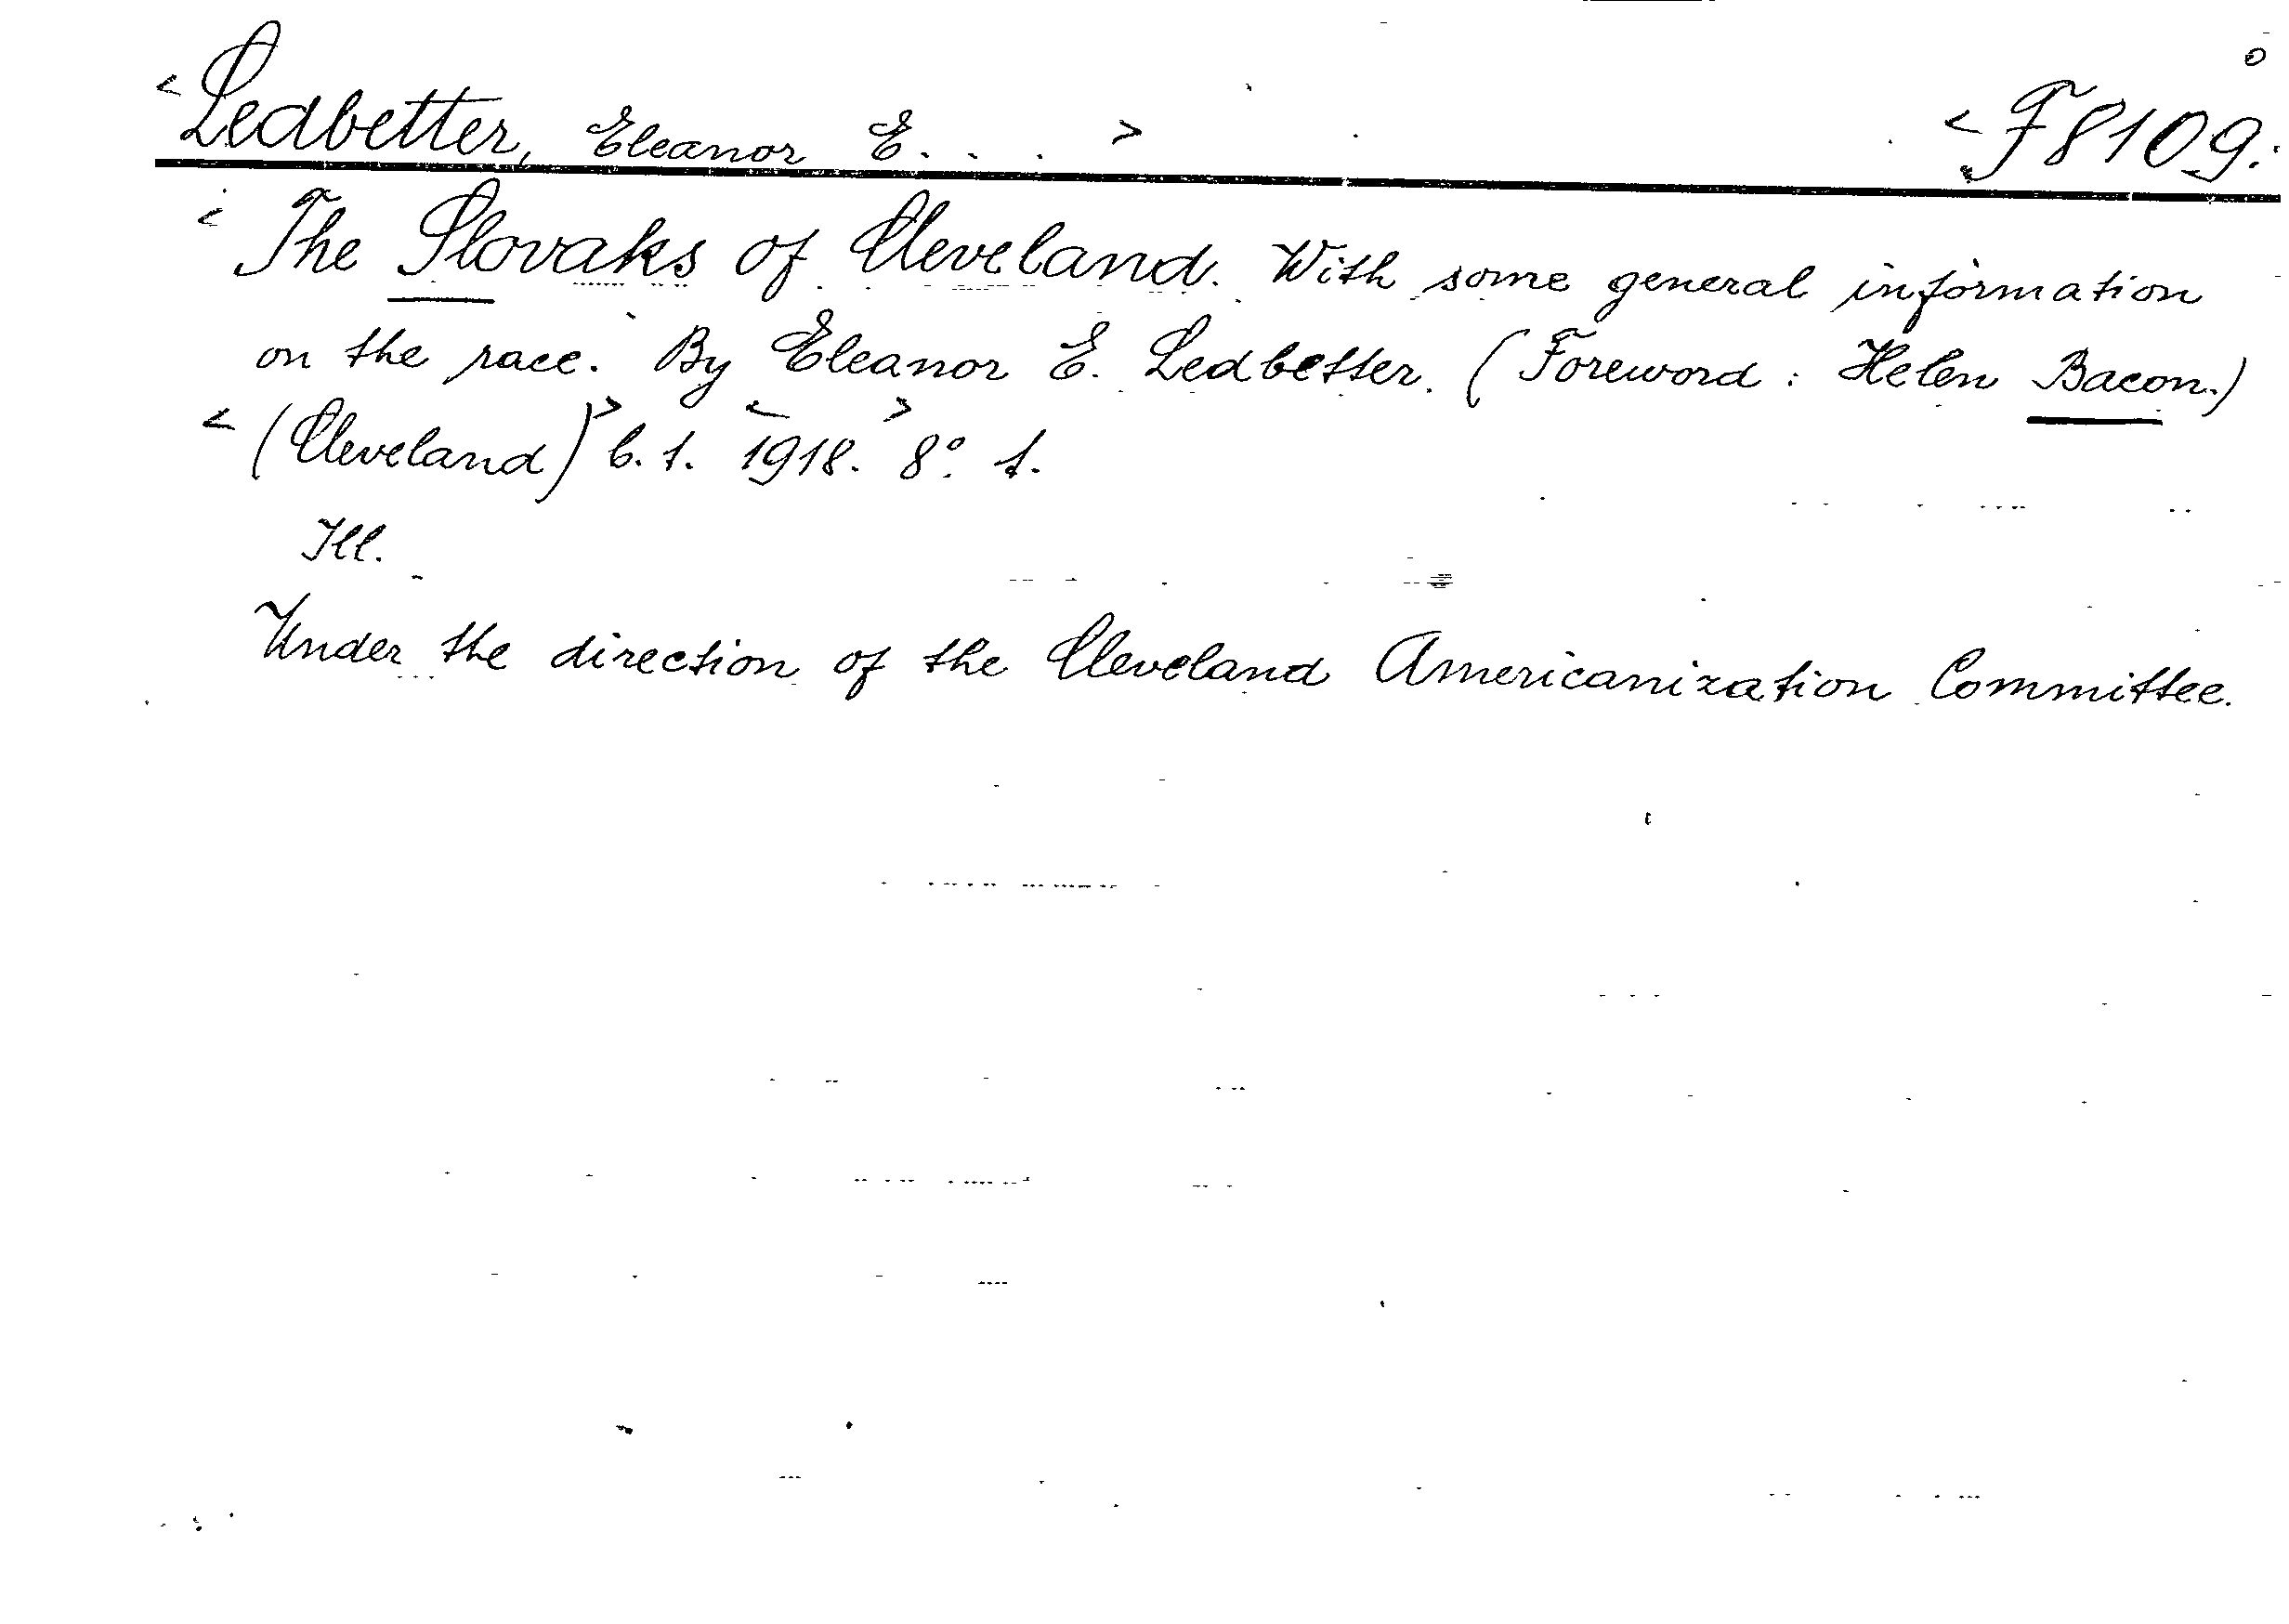 <Ledbetter, Eleanor E. . . > <F8109.
<The Slovaks of Cleveland. With some general information
on the race. By Eleanor E. Ledbetter. (Foreword: Helen Bacon.)
<(Cleveland)> b. t. <1918.> 8° t.
Ill.
Under the direction of the Cleveland Americanization Committee.